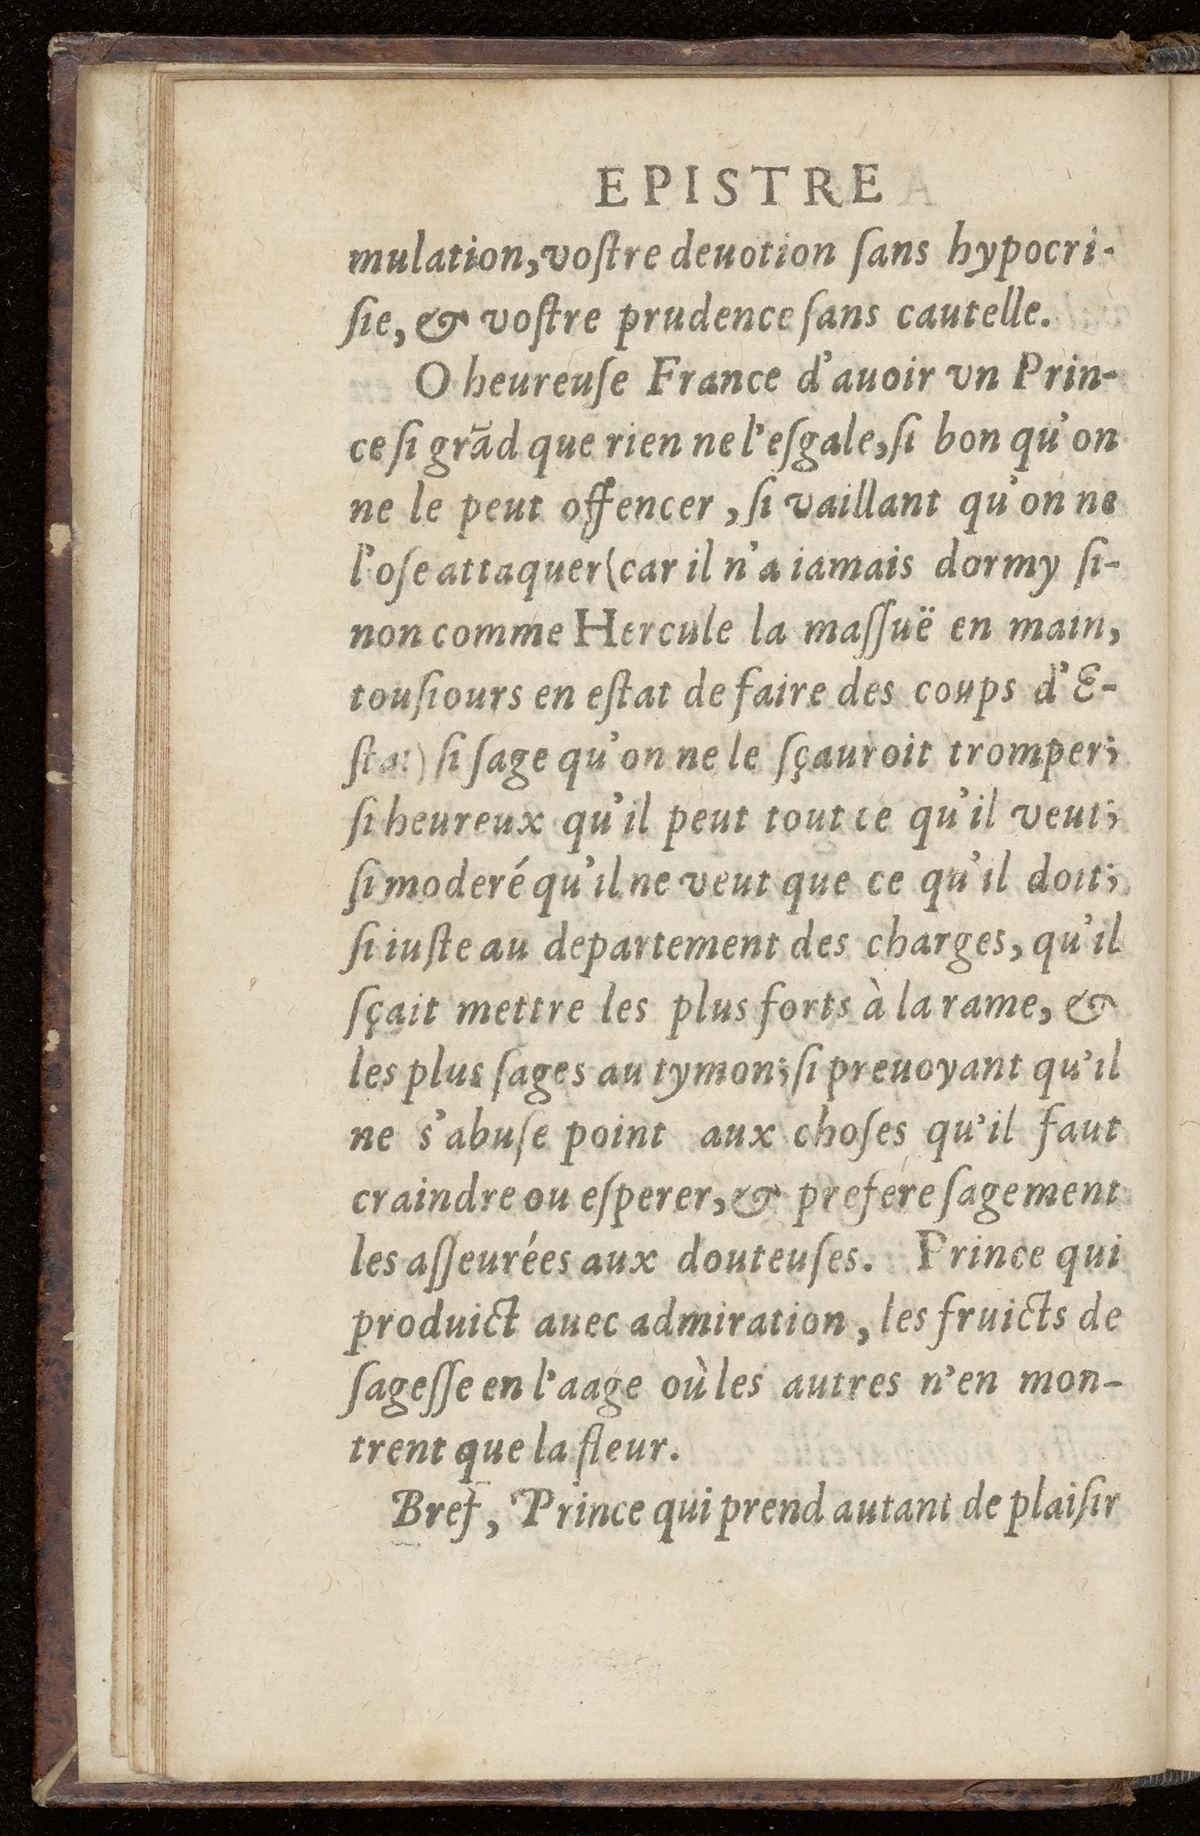 EPISTRE
mulation, voſtre deuotion ſans hypocri-
ſie, & voſtre prudence ſans cautelle.
O heureuſe France d'auoir vn Prin-
ce ſi grãd que rien ne l'eſgale, ſi bon qu'on
ne le peut offencer, ſi vaillant qu'on ne
l'oſe attaquer (car il n'a iamais dormy ſi-
non comme Hercule la maſſuë en main,
touſiours en eſtat de faire des coups d'E-
ſtat) ſi ſage qu'on ne le ſçauroit tromper;
ſi heureux qu'il peut tout ce qu'il veut;
ſi moderé qu'il ne veut que ce qu'il doit;
ſi iuſte au departement des charges, qu'il
ſçait mettre les plus forts à la rame, &
les plus ſages au tymon; ſi preuoyant qu'il
ne s'abuſe point aux choſes qu'il faut
craindre ou eſperer, & prefere ſagement
les aſſeurées aux douteuſes. Prince qui
produict auec admiration, les fruicts de
ſageſſe en l'aage où les autres n'en mon-
trent que la fleur.
Bref, Prince qui prend autant de plaiſir